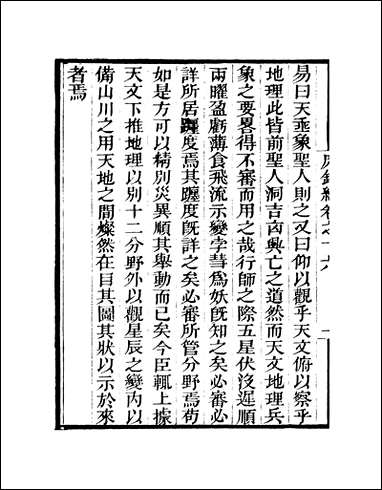 易曰天垂象聖人則之又曰仰以觀乎天文俯以察乎
地理此皆前聖人洞吉凶興亡之道然而天文地理兵
象之要畧得不審而用之哉行師之際五星伏沒遲順
兩曜盈虧薄食飛流示變孛彗為妖既知之矣必審必
詳所居躔度焉其躔度既詳之矣必審所管分野焉苟
如是方可以精別災異順其舉動而已矣今臣輒上據
天文下推地理以別十二分野外以觀星辰之變內以
備山川之用天地之間燦然在目其圖其狀以示於來
者焉